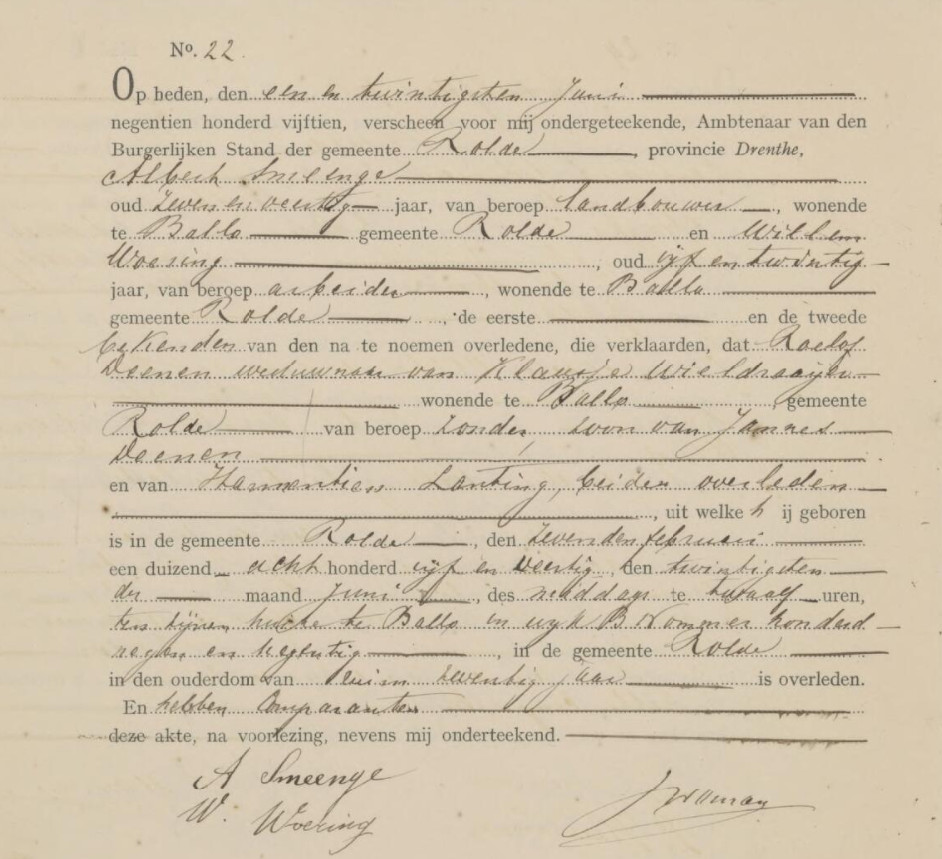 Nº. 22.
Op heden, den een en twintigsten Juni
negentien honderd vijftien, verscheen voor mij ondergeteekende, Ambtenaar van den
Burgerlijken Stand der gemeente Rolde, provincie Drenthe,
Albert Smeenge
oud zeven en veertig jaar, van beroep landbouwer, wonende
te Ballo gemeente Rolde en Willem
Woering, oud vijf en twintig
jaar, van beroep arbeider, wonende te Ballo
gemeente Rolde, de eerste en de tweede
bekenden van den na te noemen overledene, die verklaarden, dat Roelof
Deenen weduwnaar van Klaasje Wieldraayer
wonende te Ballo, gemeente
Rolde van beroep zonder, zoon van Jannes
Deenen
en van Harmentien Lanting, beiden overleden
, uit welke h ij geboren
is in de gemeente Rolde, den zevenden februari
een duizend acht honderd vijf en veertig, den twintigsten
der maand Juni, des middags te twaalf uren,
ten zijnen huize te Ballo in wijk B Nommer honderd
negen en negentig, in de gemeente Rolde
in den ouderdom van ruim zeventig jaar is overleden.
En hebben Comparanten
deze akte, na voorlezing, nevens mij onderteekend.
A Smeenge
W. Woering